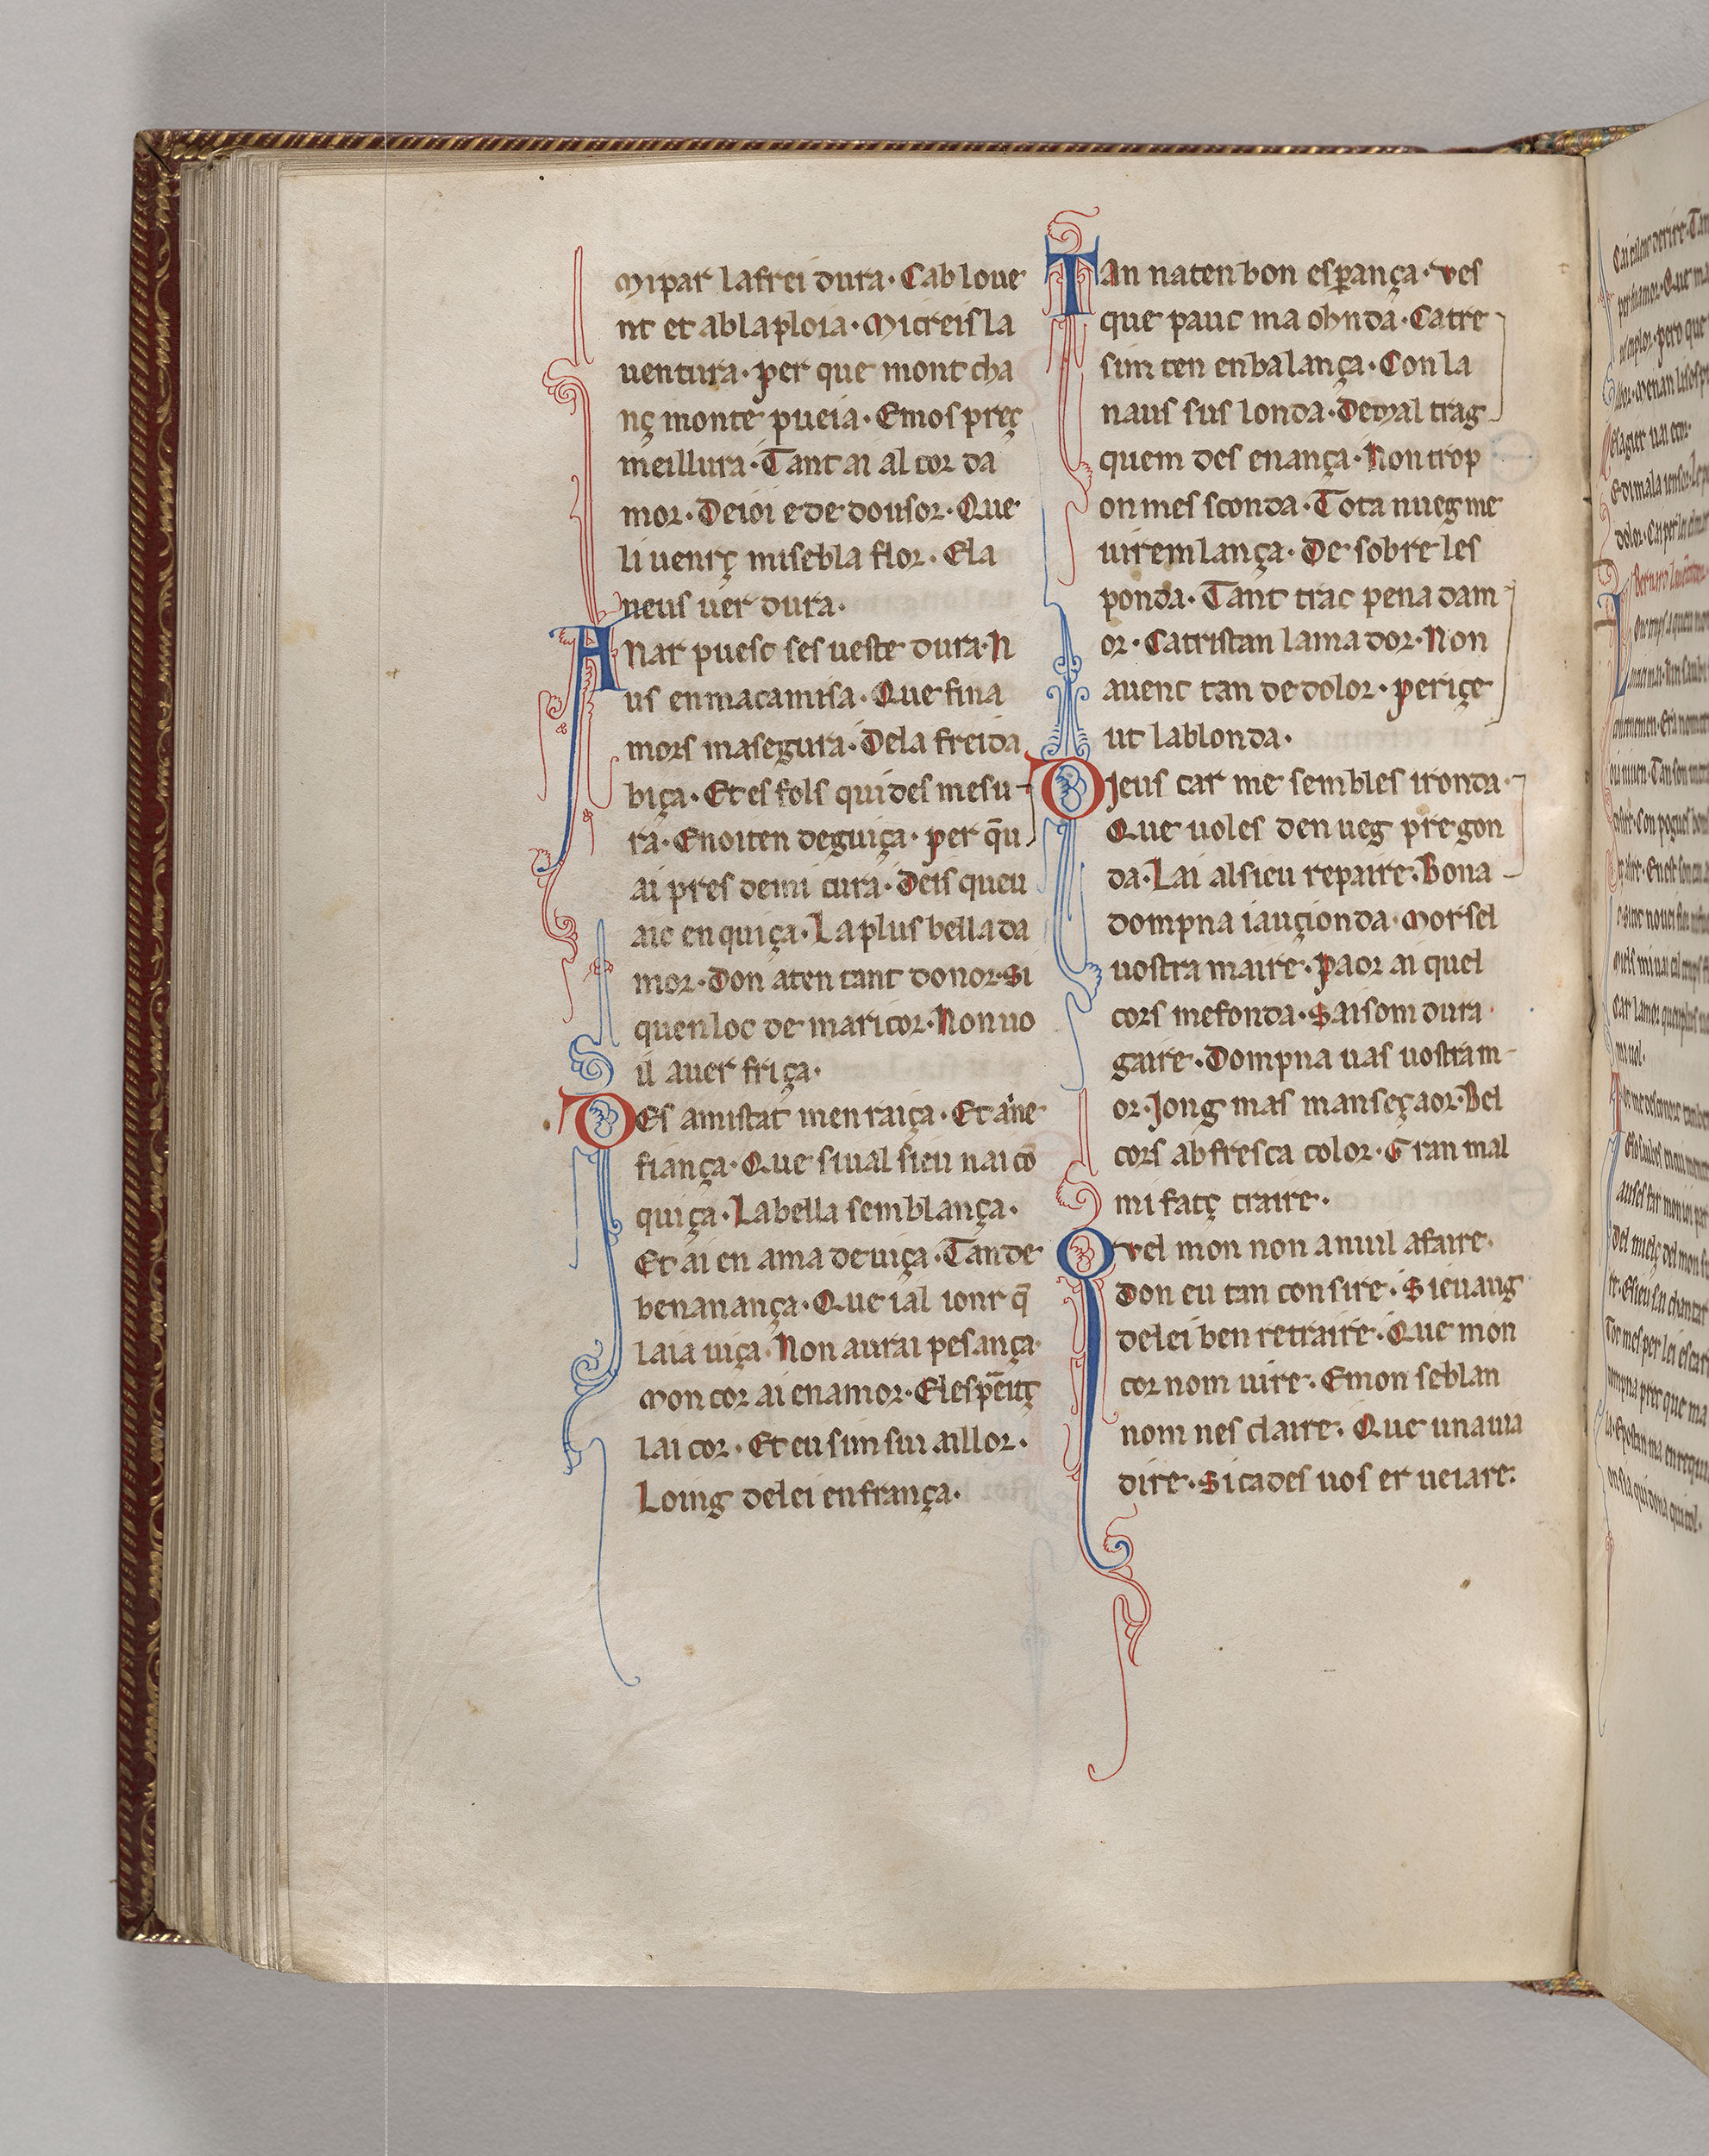 Mi par lafrei dura. Cab loue
nt et ablaploia. Micreisla
uentura. per que mont cha
nç monte pueia. Emos preç
meillura. Tant ai al cor da
mor. Deioi e de dousor. Que
li uentç misebla flor. Ela
neus uer dura.
ANar puesc ses ueste dura. N
us enmacamisa. Que fina
mors masegura. Dela freida
biça. Et es fols qui des mesu
ra. Enoiten deguiça. per q̄u
ai pres demi cura. Deis queu
aic en quiça. La plus bella da
mor. Don aten tant donor. Si
quen loc de maricor. Non uo
il auer friça.
DEs amistat men raiça. Et aine
fiança. Que siual sieu nai cō
quiça. Labella semblança.
Et ai en ama deuiça. Tan de
benanança. Que ial iont q̄
laia uiça. Non aurai pesança.
Mon cor ai enamor. Elesp̄eitç
lai cor. Et eu sim sui aillor.
Loing delei en frança.
TAn naten bon esperança. Ves
que pauc ma ohnda. Catre
sim ten enbalança. Con la
naus sus londa. Demal trag
quem des enança. Non trop
on mes sconda. Tota nueg me
uirem lança. De sobre les
ponda. Tant trac pena dam
or. Ca tristan lamador. Non
auenc tan de dolor. per içe
ut lablonda.
DJeus car me sembles ironda.
Que uoles den ueg pregon
da. Lai alsieu repaire. Bona
dompna iauçionda. Morsel
uostra maire. Paor ai quel
cors mefonda. Saisom dura
gaire. Dompna uas uostram
or. Jong mas manseçaor. Bel
cors ab fresca color. Gran mal
mi fatç traire.
QVel mon non a nuil afaire.
don eu tan consire. Sieuaug
delei ben retraire. Que mon
cor nom uire. Emon seblan
nom nes claire. Que una uia
dire. Sicades uos er ueiare.